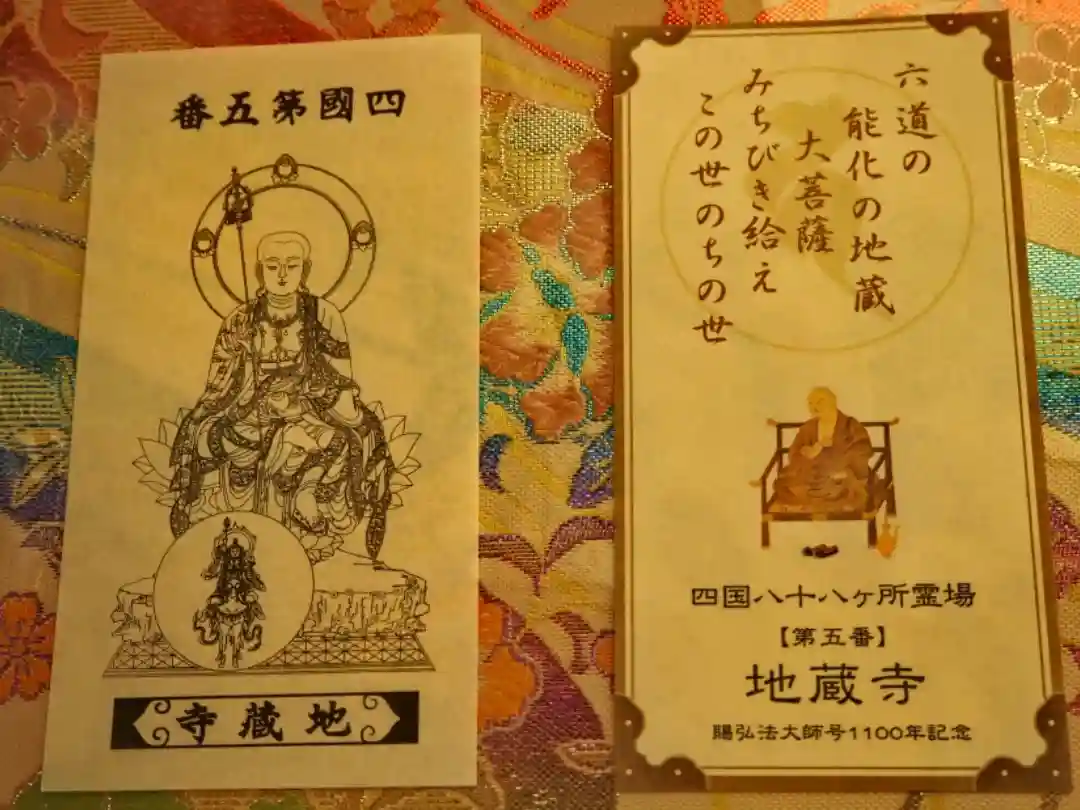 四國第五番
地蔵寺
六道の
能化の地蔵
大菩薩
みちびき給え
この世のちの世
四国八十八ヶ所霊場
【第五番】
地蔵寺
賜弘法大師号1100年記念